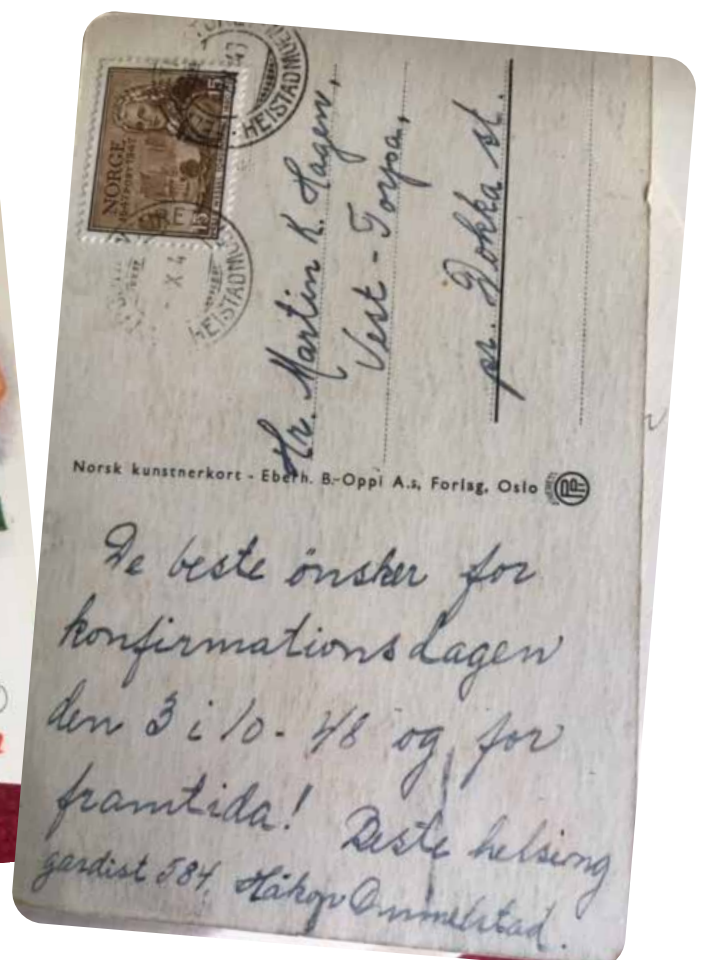 NORGE
15
HEISTADMOEN
HEISTADMO
X 4
Hr. Martin K. Hagen,
Vest-Torpa,
pr. Dokka st.
Norsk kunstnerkort - Eberh. B.-Oppi A.s, Forlag, Oslo
De beste önsker for
konfirmationsdagen
den 3 i 10 - 48 og for
framtida! Beste helsing
gardist 584, Håkon Ommelstad.